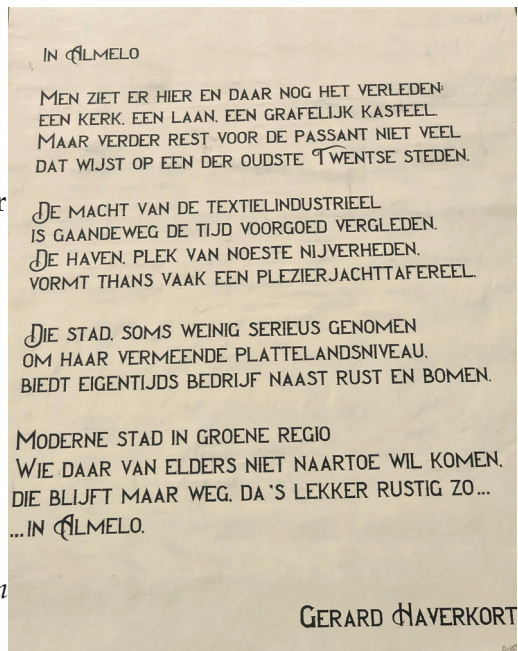 In Almelo
Men ziet er hier en daar nog het verleden:
een kerk, een laan, een grafelijk kasteel.
Maar verder rest voor de passant niet veel
dat wijst op een der oudste Twentse steden.
De macht van de textielindustrieel
is gaandeweg de tijd voorgoed vergleden.
De haven, plek van noeste nijverheden,
vormt thans vaak een plezierjachttafereel.
Die stad, soms weinig serieus genomen
om haar vermeende plattelandsniveau,
biedt eigentijds bedrijf naast rust en bomen.
Moderne stad in groene regio
Wie daar van elders niet naartoe wil komen,
die blijft maar weg, da's lekker rustig zo...
...in Almelo.
Gerard Haverkort